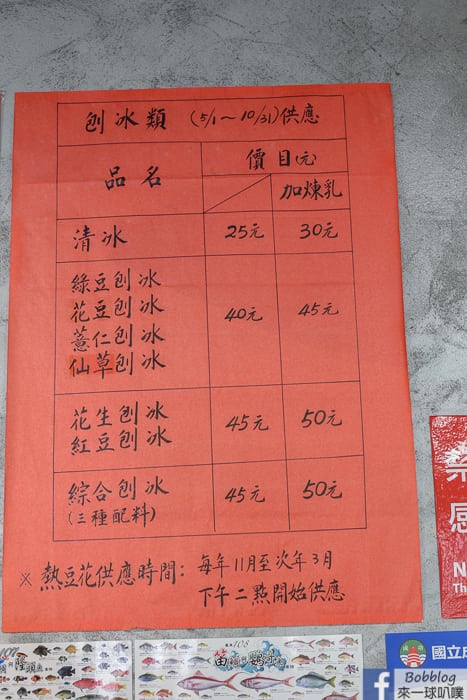 刨冰類 (5/1～10/31)供應
品名
價目(元)
加煉乳
清冰 25元 30元
綠豆刨冰
花豆刨冰
薏仁刨冰
仙草刨冰
40元 45元
花生刨冰
紅豆刨冰
45元 50元
綜合刨冰
(三種配料)
45元 50元
※熱豆花供應時間：每年11月至次年3月
下午二點開始供應
禁
國立
108
Bobblog
來一球叭噗